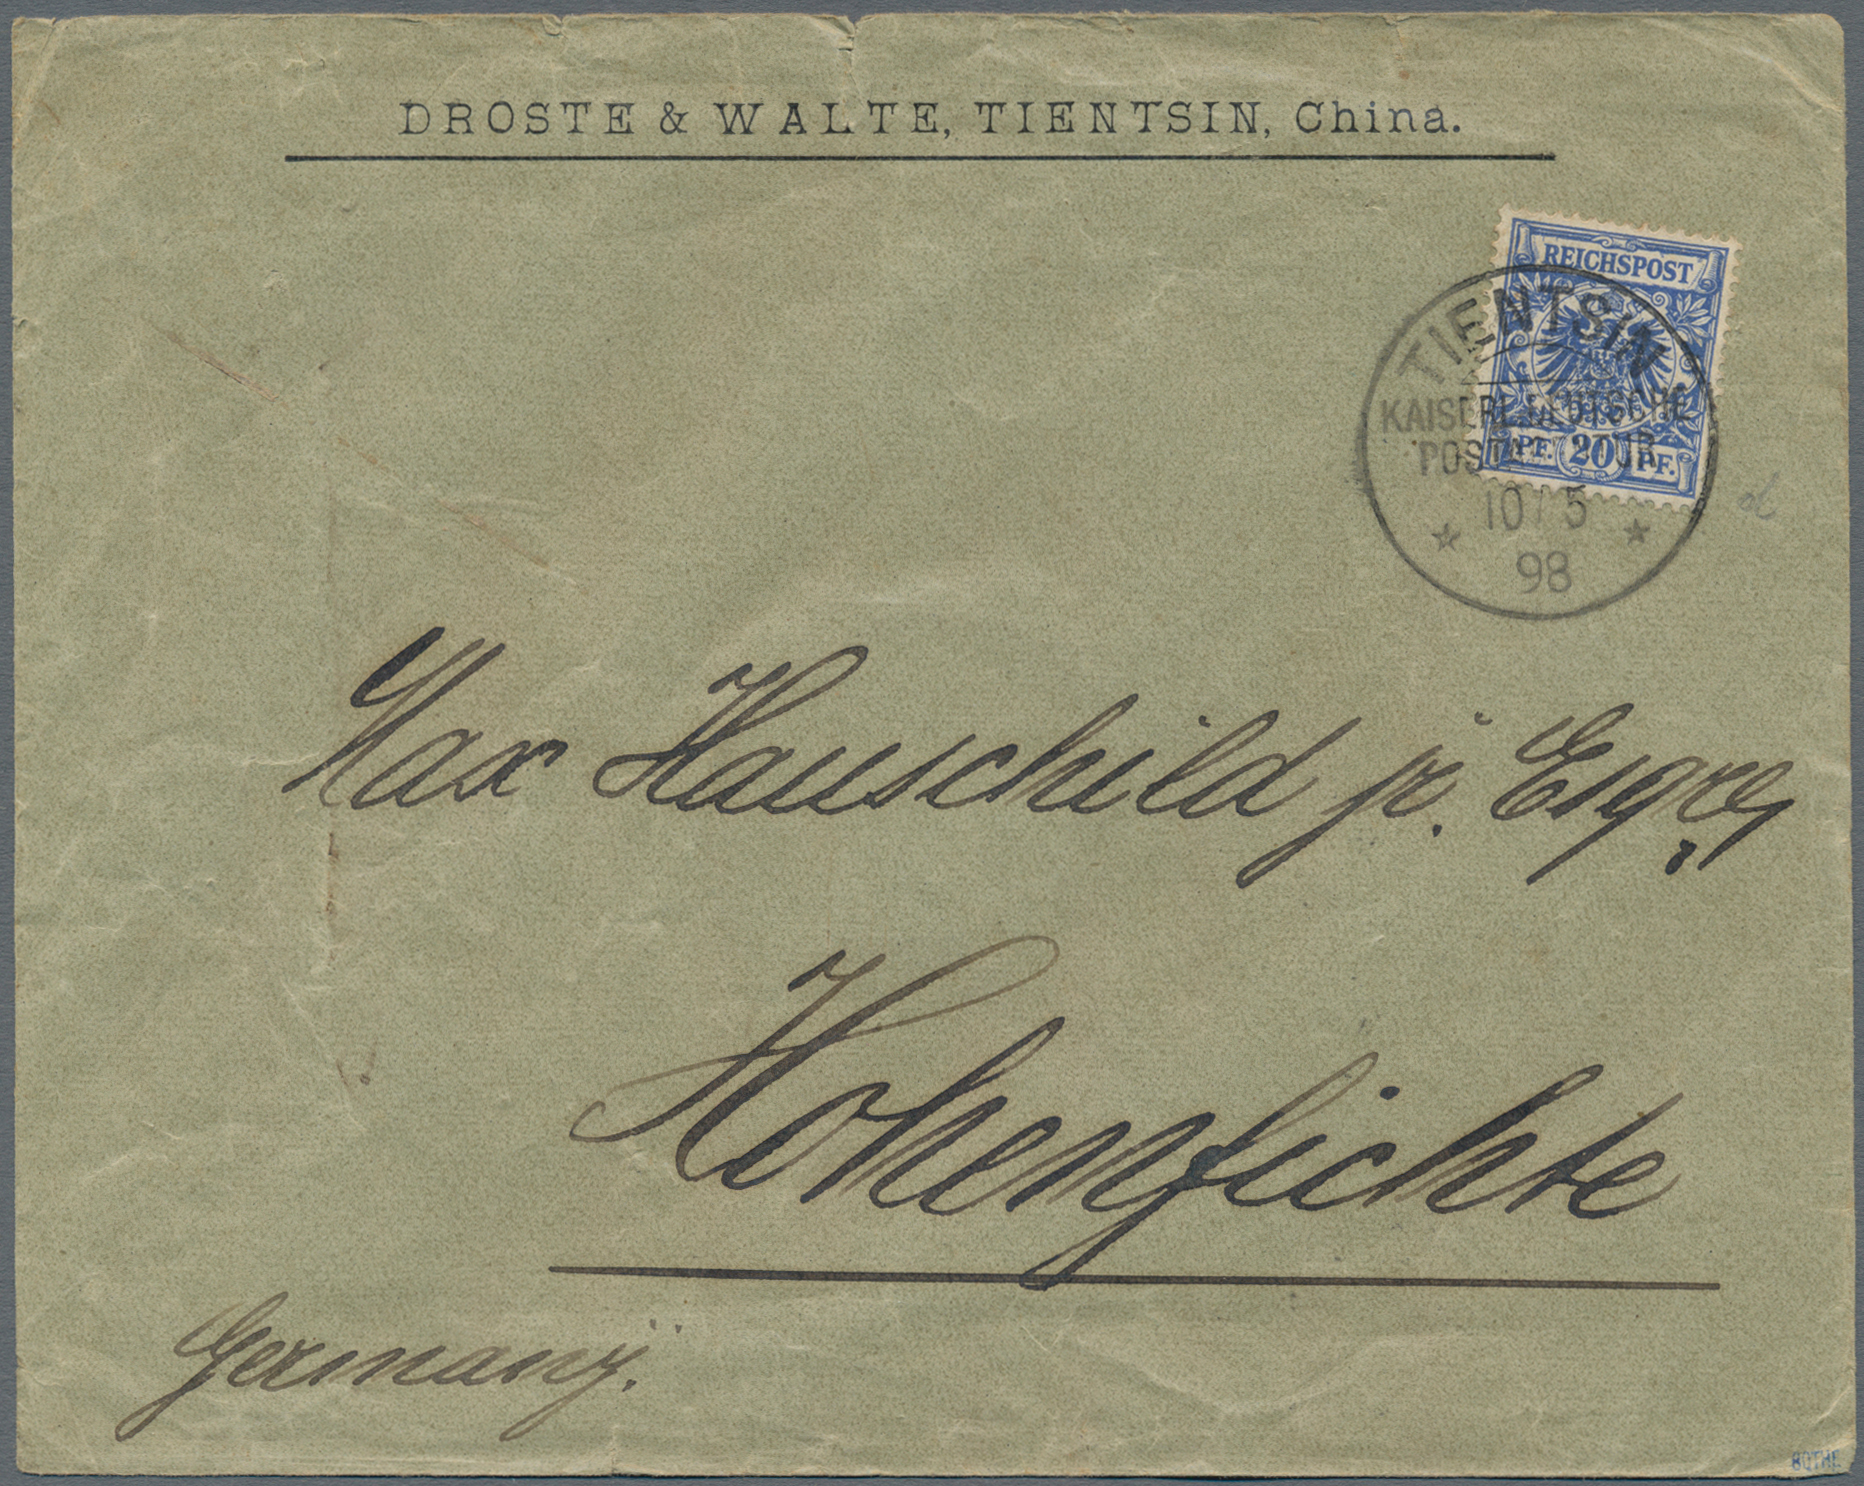 DROSTE & WALTE, TIENTSIN, China.
REICHSPOST
PF. 20 PF.
TIENTSIN
KAISERL. DEUTSCHE
POSTAGENTUR
10/5
98
Max Hauschild jr. Esqre,
Hohenfichte
Germany.
BOTHE